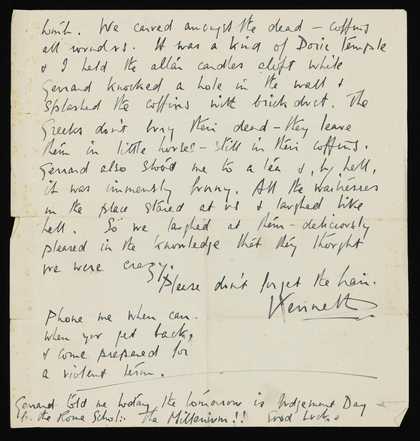 tomb. We carved amongst the dead – coffins
all round us. It was a kind of Doric Temple
& I held the altar candles aloft while
Gerrard knocked a hole in the wall &
splashed the coffins with brick dust. The
Greeks don't bury their dead – they leave
them in little houses – still in their coffins.
Gerrard also stood me to a tea & by hell,
it was immensely funny. All the waitresses
in the place stared at us & laughed like
hell. So we laughed at them – deliciously
pleased in the knowledge that they thought
we were crazy.
Please don't forget the hair.
Kenneth
Phone me when can.
When you get back,
& come prepared for
a violent term.
Gerrard told me today the tomorrow is Judgement Day
the Rome Schol: The Millenium!! Good Luck.